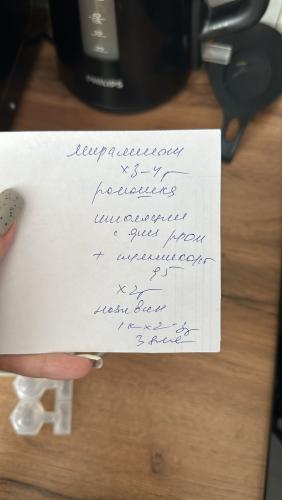 PHILIPS
мирамистин
х3-4р
ромашка
ингаляции
с физ рром
+ пульмикорт
х2р
називин
1к х2-3р
3 дня